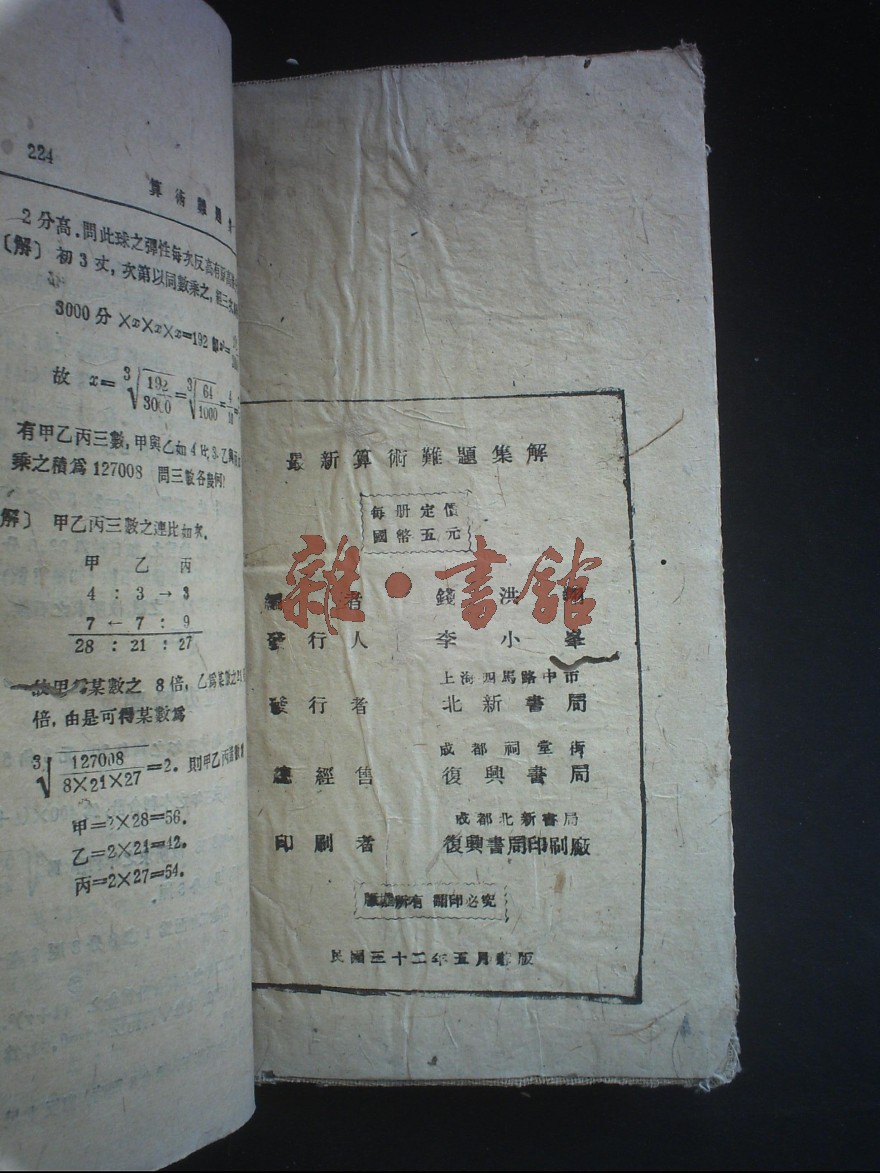 224
算術難題
2分高.問此球之彈性每次反高有
〔解〕初3丈,次第以同數乘之,
3000分×x×x×x=192
故 x=∛192/3000=∛64/1000=4/10=
有甲乙丙三數,甲與乙如4比3.乙
乘之積爲127008 問三數各幾何?
解〕甲乙丙三數之連比如次.
甲 乙 丙
4 : 3 → 3
7 ← 7 : 9
28 : 21 : 27
故甲爲某數之 8倍,乙爲某數之21
倍,由是可得某數爲
∛127008/8×21×27=2. 則甲乙丙
甲=2×28=56.
乙=2×21=42.
丙=2×27=54.
最新算術難題集解
每册定價
國幣五元
雜·書館
編 者 錢洪翔
發行人 李小峯
上海四馬路中市
發行者 北新書局
成都祠堂街
總經售 復興書局
成都北新書局
印刷者 復興書局印刷廠
版權所有 翻印必究
民國三十二年五月 版